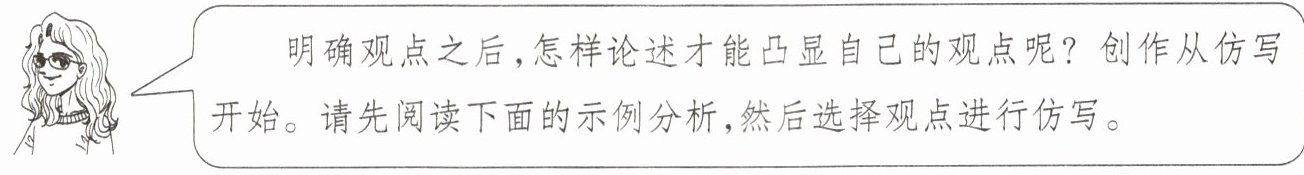 明确观点之后,怎样论述才能凸显自己的观点呢?创作从仿写
开始。请先阅读下面的示例分析,然后选择观点进行仿写。